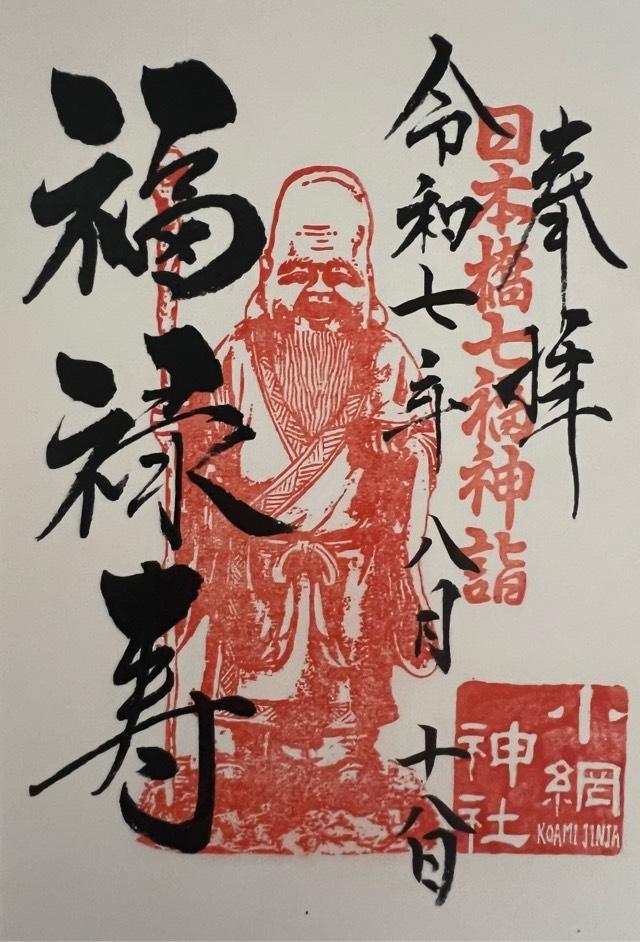 奉拝
日本橋七福神詣
令和七年八月十八日
福禄寿
小網
神社
KOAMI JINJA